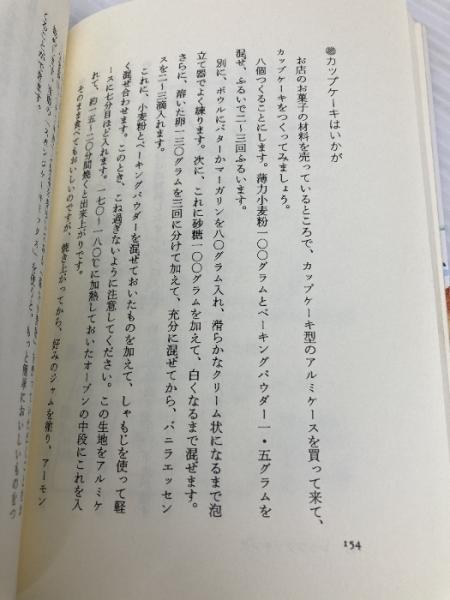 カップケーキはいかが
お店のお菓子の材料を売っているところで、カップケーキ型のアルミケースを買って来て、
カップケーキをつくってみましょう。
八個つくることにします。薄力小麦粉一〇〇グラムとベーキングパウダー一・五グラムを
混ぜ、ふるいで二〜三回ふるいます。
別に、ボウルにバターかマーガリンを八〇グラム入れ、滑らかなクリーム状になるまで泡
立て器でよく練ります。次に、これに砂糖一〇〇グラムを加えて、白くなるまで混ぜます。
さらに、溶いた卵一三〇グラムを三回に分けて加えて、充分に混ぜてから、バニラエッセン
スを二〜三滴入れます。
これに、小麦粉とベーキングパウダーを混ぜておいたものを加えて、しゃもじを使って軽
く混ぜ合わせます。このとき、こね過ぎないように注意してください。この生地をアルミケ
ースに七分目ほど入れます。一七〇〜一八〇℃に加熱しておいたオーブンの中段にこれを入
れて、約一五〜二〇分間焼くと出来上がりです。
そのまま食べてもおいしいのですが、焼き上がってから、好みのジャムを塗り、アーモン
154